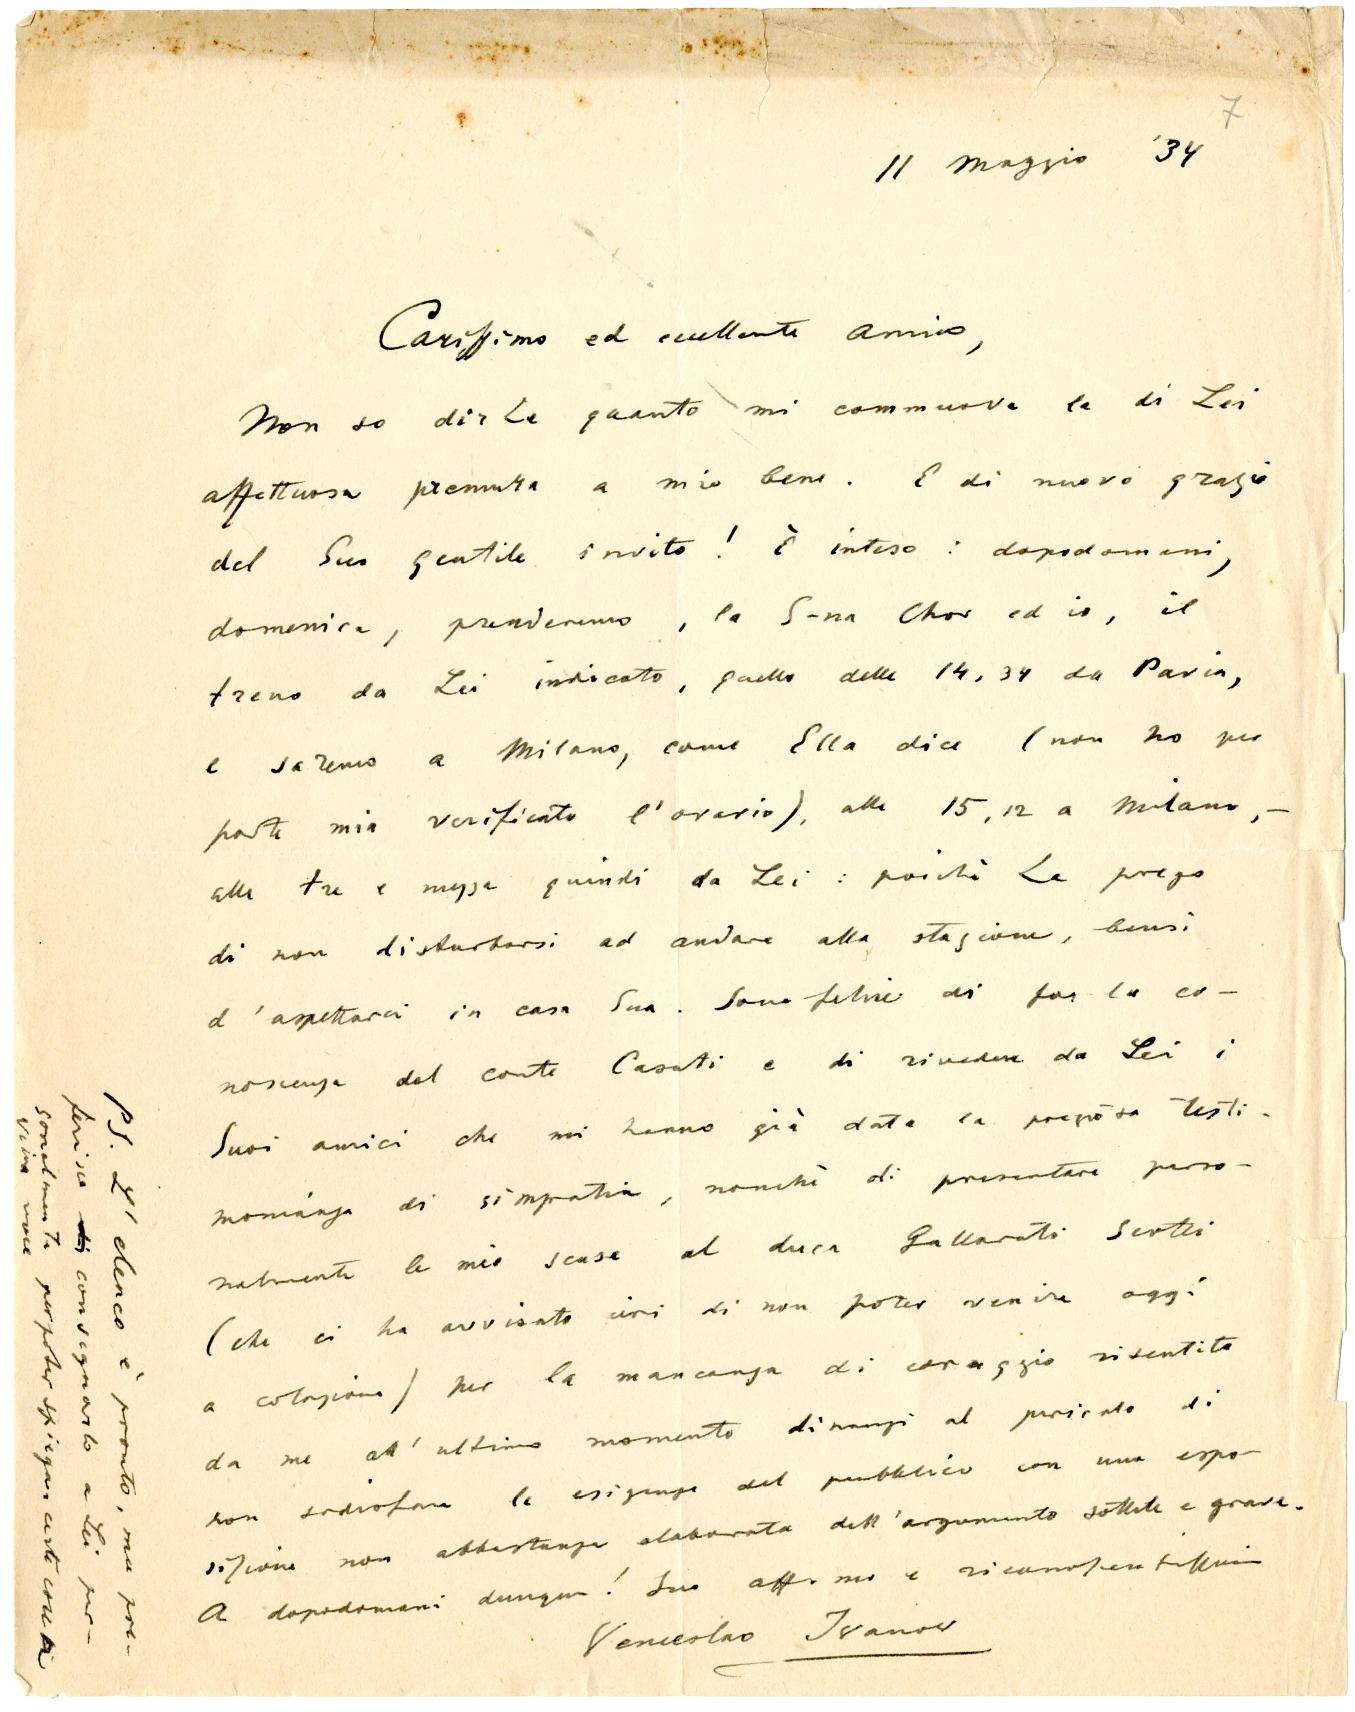 7
11 Maggio '34
Carissimo ed eccellente amico,
Non so dirLe quanto mi commuove la di Lei
affettuosa premura a mio bene. E di nuovo grazie
del Suo gentile invito! È inteso: dopodomani,
domenica, prenderemo, la S-na Chor ed io, il
treno da Lei indicato, quello delle 14,34 da Pavia,
e saremo a Milano, come Ella dice (non ho per
parte mia verificato l'orario), alle 15,12 a Milano,—
alle tre e mezza quindi da Lei: poichè Le prego
di non disturbarsi ad andare alla stazione, bensì
d'aspettarci in casa Sua. Sono felice di far la co-
noscenza del conte Casati e di rivedere da Lei i
Suoi amici che mi hanno già data la preziosa testi-
monianza di simpatia, nonchè di presentare perso-
nalmente le mie scuse al duca Gallarati Scotti
(che ci ha avvisato ieri di non poter venire oggi
a colazione) per la mancanza di coraggio risentita
da me all'ultimo momento dinanzi al pericolo di
non sodisfare le esigenze del pubblico con una espo-
sizione non abbastanza elaborata dell'argomento sottile e grave.
A dopodomani dunque! Suo aff.mo e riconoscentissimo
Venceslao Ivanov
PS. L'elenco è pronto, ma pre-
ferisco di consegnarlo a Lei per-
sonalmente per poter spiegar certe cose a
viva voce